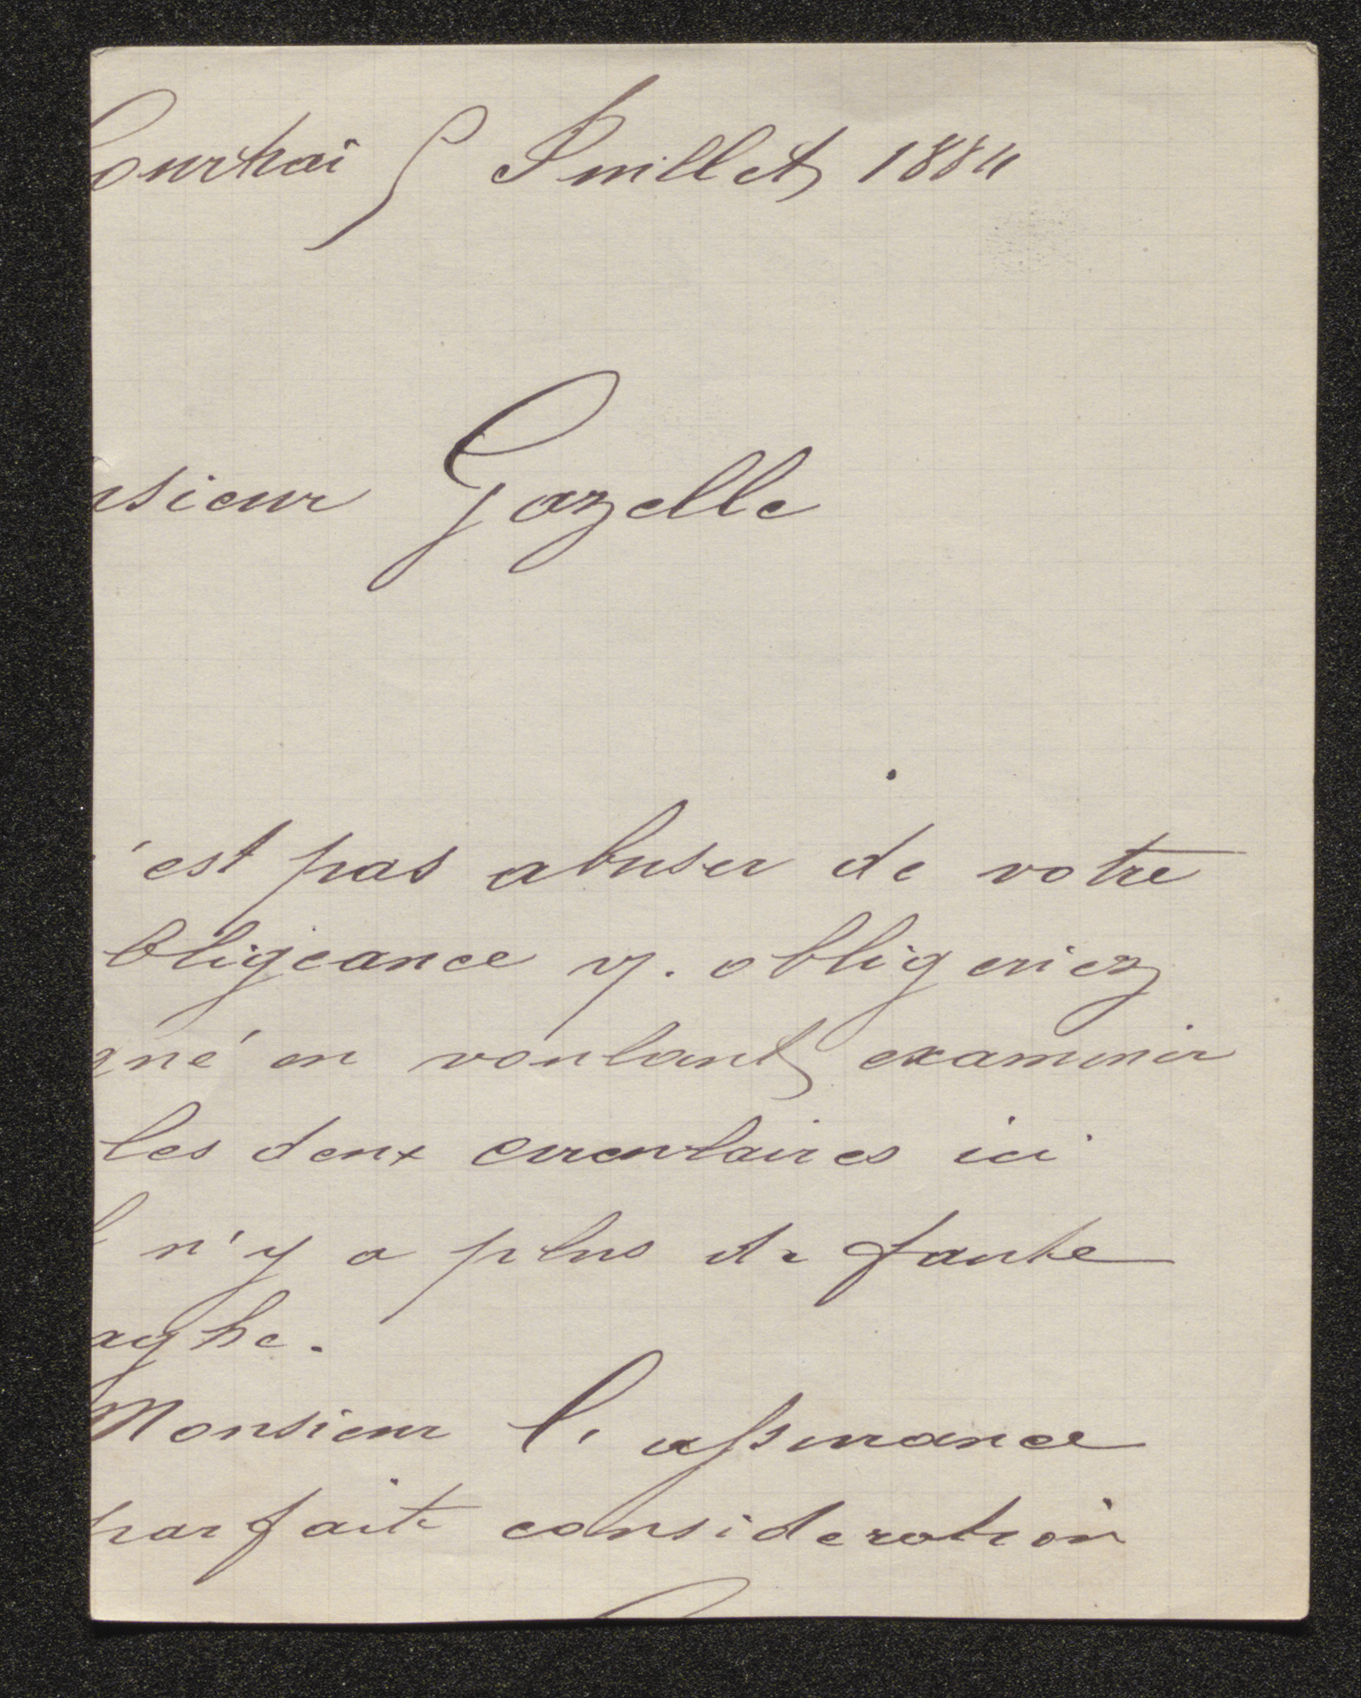 Courtrai 5 Juillet 1884
nsieur Gazelle
'est pas abuser de votre
bligeance y. obligeriez
gné en voulant examiner
les deux circulaires ici
l n'y a plus de faute
aghe.
Monsieur l'assurance
parfaite consideration